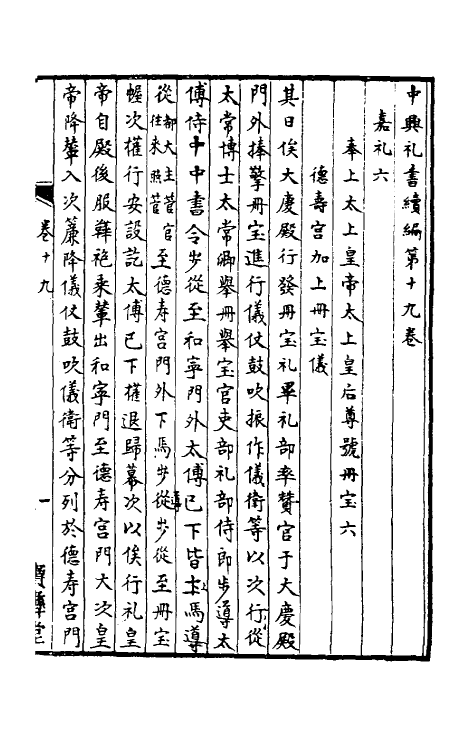 中興礼書續編第十九卷
嘉礼六
奉上太上皇帝太上皇后尊號冊宝六
德壽宫加上冊宝儀
其日俟大慶殿行發冊宝礼畢礼部率贊官于大慶殿
門外捧擎冊宝進行儀仗鼓吹振作儀衛等以次行從
太常博士太常卿舉冊舉宝官吏部礼部侍郎步導太
傅侍中中書令步從至和寧門外太傅已下皆上馬導
從都大主管官往来照管至德寿宫門外下馬步導從步從至冊宝
幄次權行安設訖太傅已下權退歸幕次以俟行礼皇
帝自殿後服鞾袍乘輦出和寧門至德寿宫門大次皇
帝降輦入次簾降儀仗鼓吹儀衛等分列於德寿宫門
卷十九
一